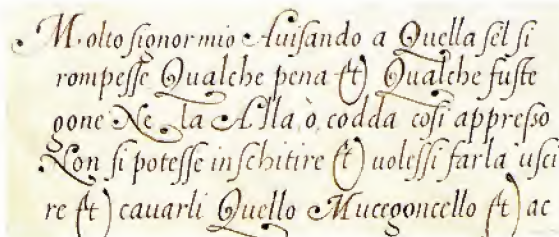 M. olto ſignor mio Auiſando a Quella ſel ſi
rompeſſe Qualche pena et Qualche fuſte
gone Ne la Alla, ò, codda coſi appreſſo
Non ſi poteſſe inſchitire et uoleſſi farla uſci
re et cauarli Quello Mucegoncello et ac